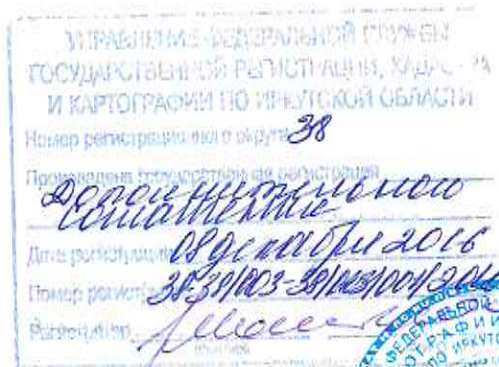 УПРАВЛЕНИЕ ФЕДЕРАЛЬНОЙ СЛУЖБЫ
ГОСУДАРСТВЕННОЙ РЕГИСТРАЦИИ, КАДАСТРА
И КАРТОГРАФИИ ПО ИРКУТСКОЙ ОБЛАСТИ
Номер регистрационного округа 38
Произведена государственная регистрация
Дополнительного
соглашения
Дата регистрации 08 декабря 2016
Номер регист
Регистратор
подпись
ФЕДЕРАЛЬНОЙ
ПО ИРКУТС